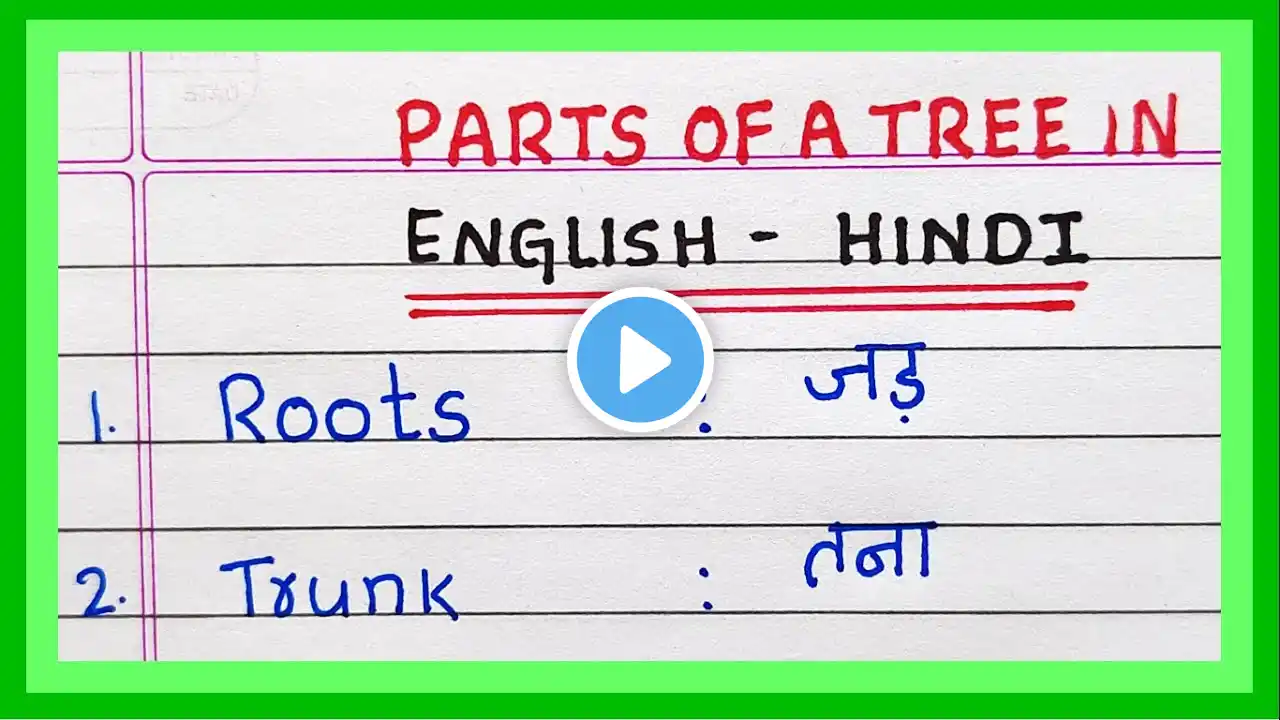 PARTS OF A TREE IN
ENGLISH - HINDI
1. Roots : जड़
2. Trunk : तना